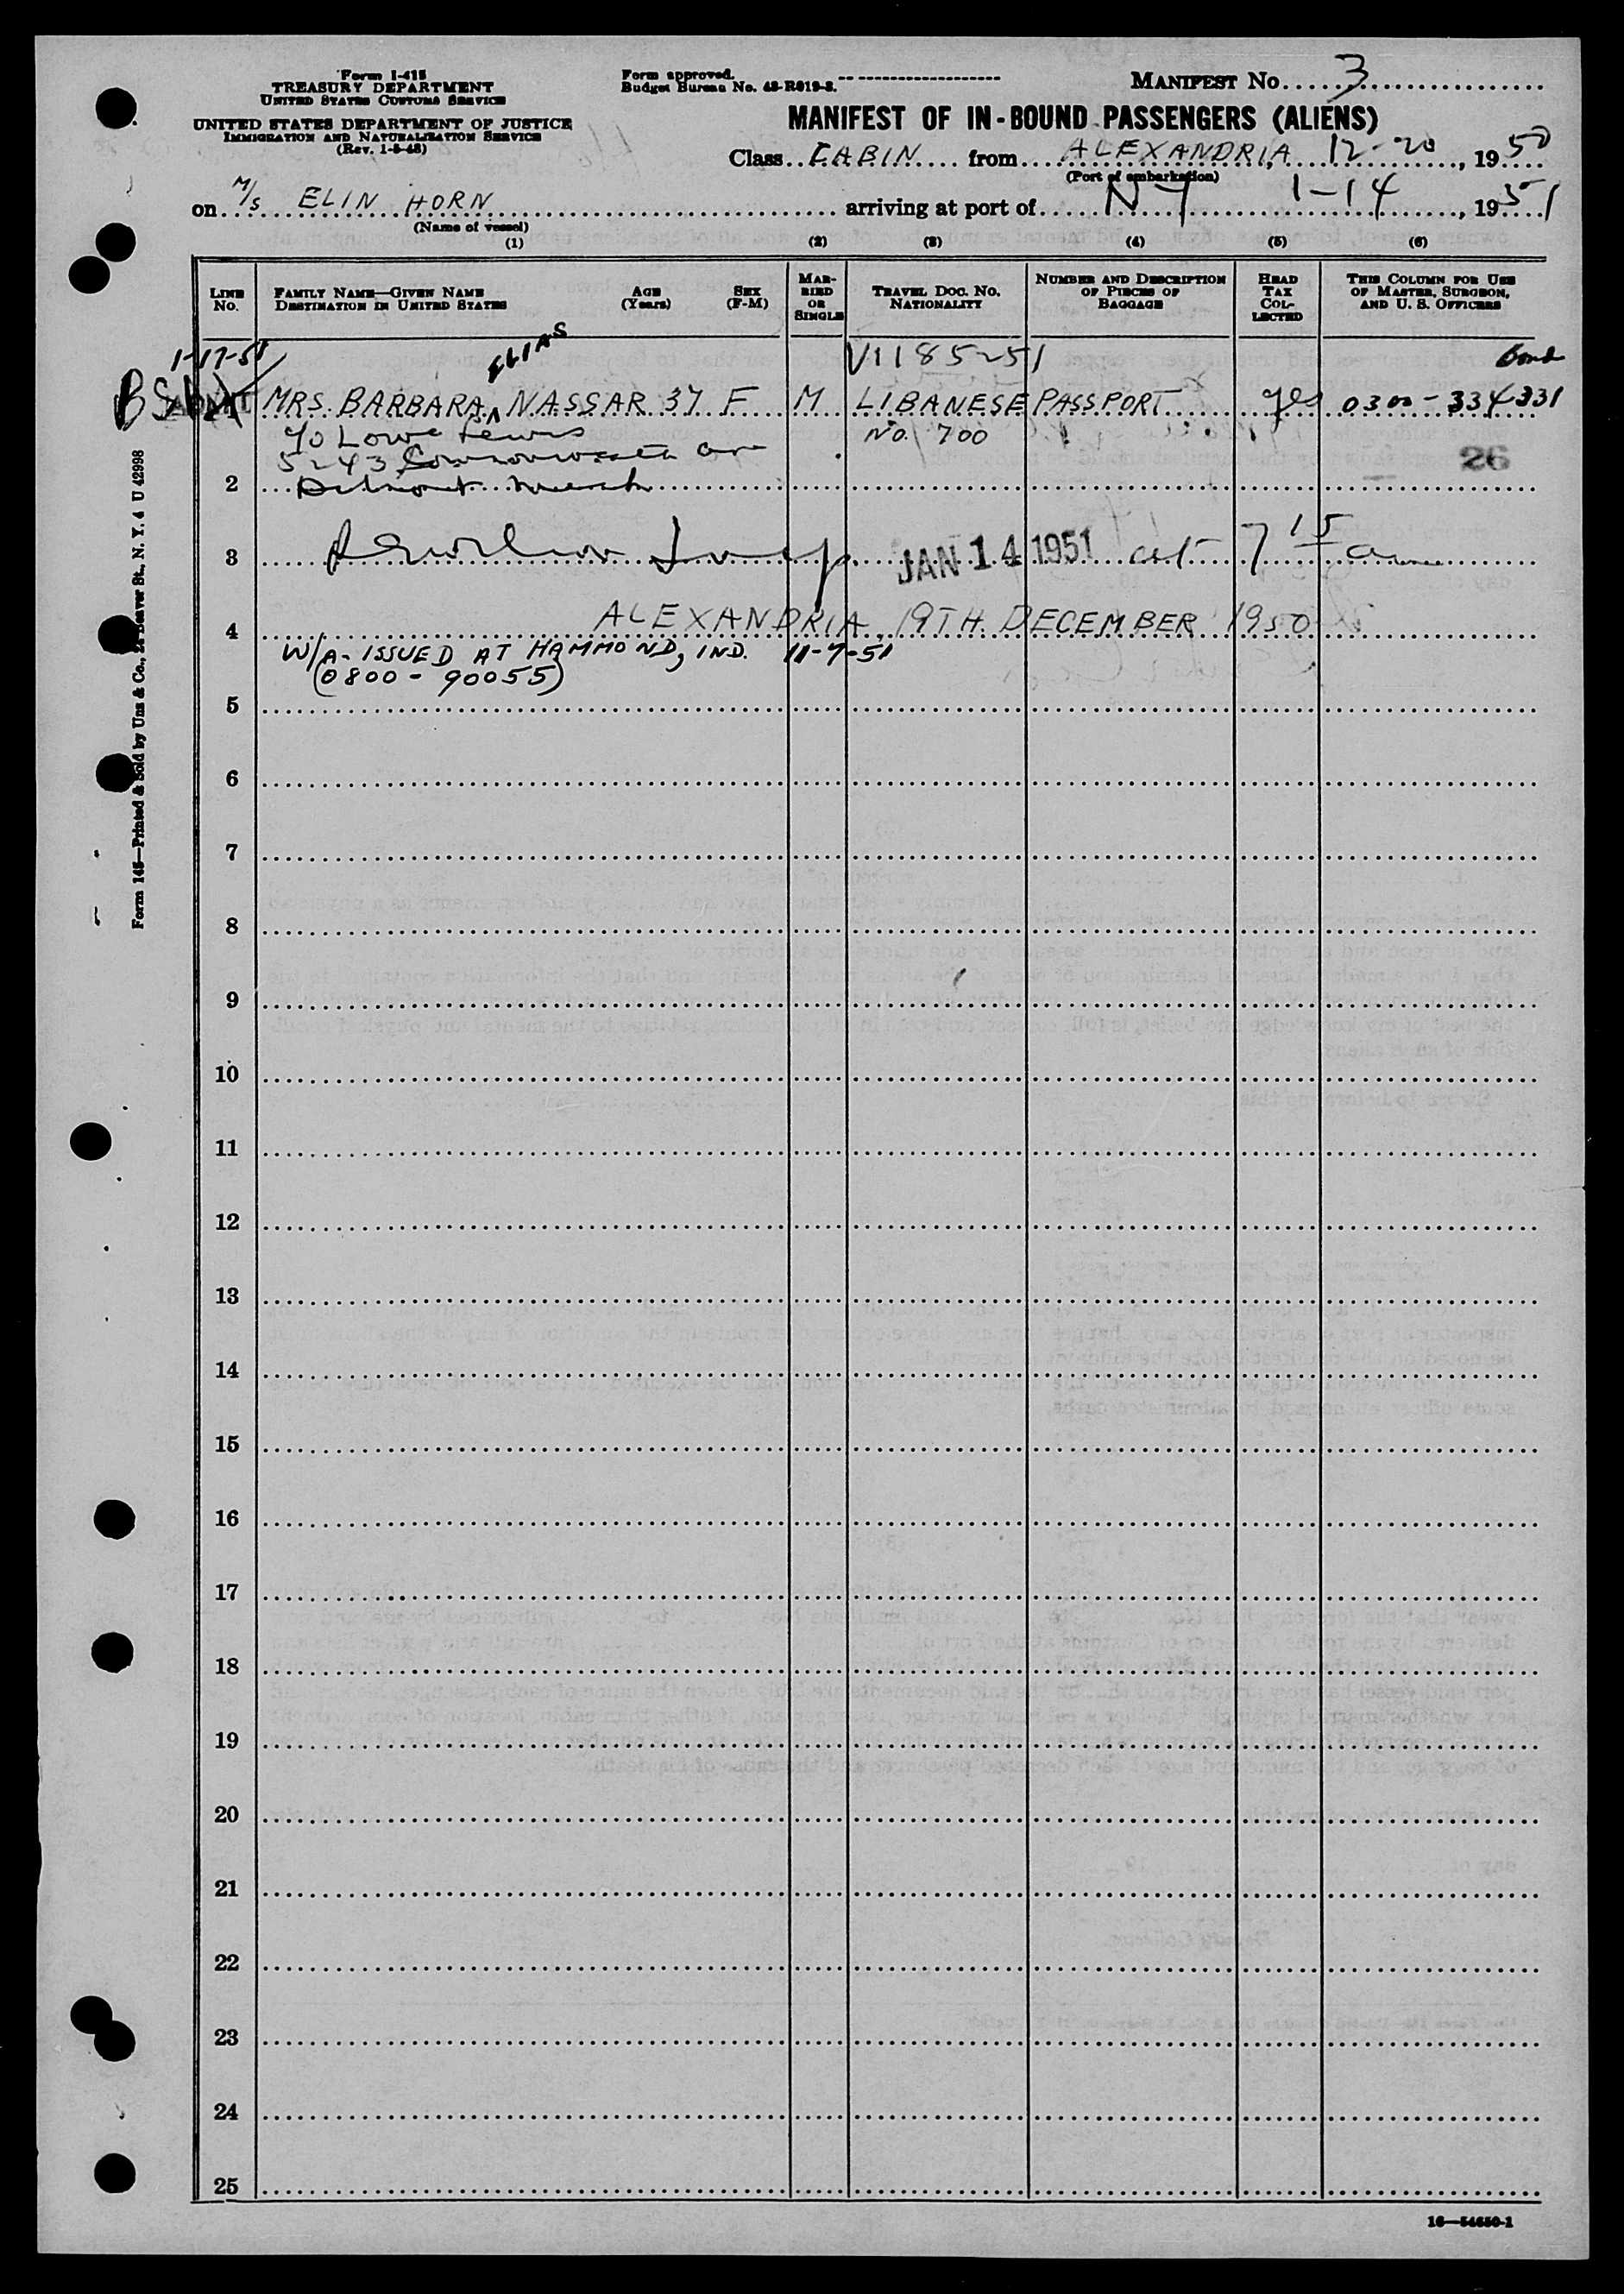 Form I-415
TREASURY DEPARTMENT
UNITED STATES CUSTOMS SERVICE
UNITED STATES DEPARTMENT OF JUSTICE
IMMIGRATION AND NATURALIZATION SERVICE
(Rev. 1-5-48)
Form approved.
Budget Bureau No. 43-R019-3.
MANIFEST No. 3
MANIFEST OF IN-BOUND PASSENGERS (ALIENS)
Class CABIN from ALEXANDRIA, 12-20, 1950
(Port of embarkation)
on M/S ELIN HORN arriving at port of NY 1-14, 1951
(Name of vessel)
(1) (2) (3) (4) (5) (6)
LINE No.
FAMILY NAME—GIVEN NAME
DESTINATION IN UNITED STATES
AGE (Years)
SEX (F-M)
MARRIED OR SINGLE
TRAVEL DOC. NO.
NATIONALITY
NUMBER AND DESCRIPTION OF PIECES OF BAGGAGE
HEAD TAX COLLECTED
THIS COLUMN FOR USE OF MASTER, SURGEON, AND U. S. OFFICERS
1-17-51 ELIAS V1185251 Bond
BSI ADMIT MRS. BARBARA NASSAR 37 F M LIBANESE PASSPORT yes 0300-334331
c/o Lowe Lewis No. 700
5243 Ave 26
2
3 JAN 14 1951 at 7 15 am
4 ALEXANDRIA, 19TH DECEMBER 1950
W/A- ISSUED AT HAMMOND, IND. 11-7-51
(0800-90055)
5
6
7
8
9
10
11
12
13
14
15
16
17
18
19
20
21
22
23
24
25
Form 145—Printed & Sold by Unz & Co., 24 Beaver St., N. Y. 4 U 42998
16—54650-1